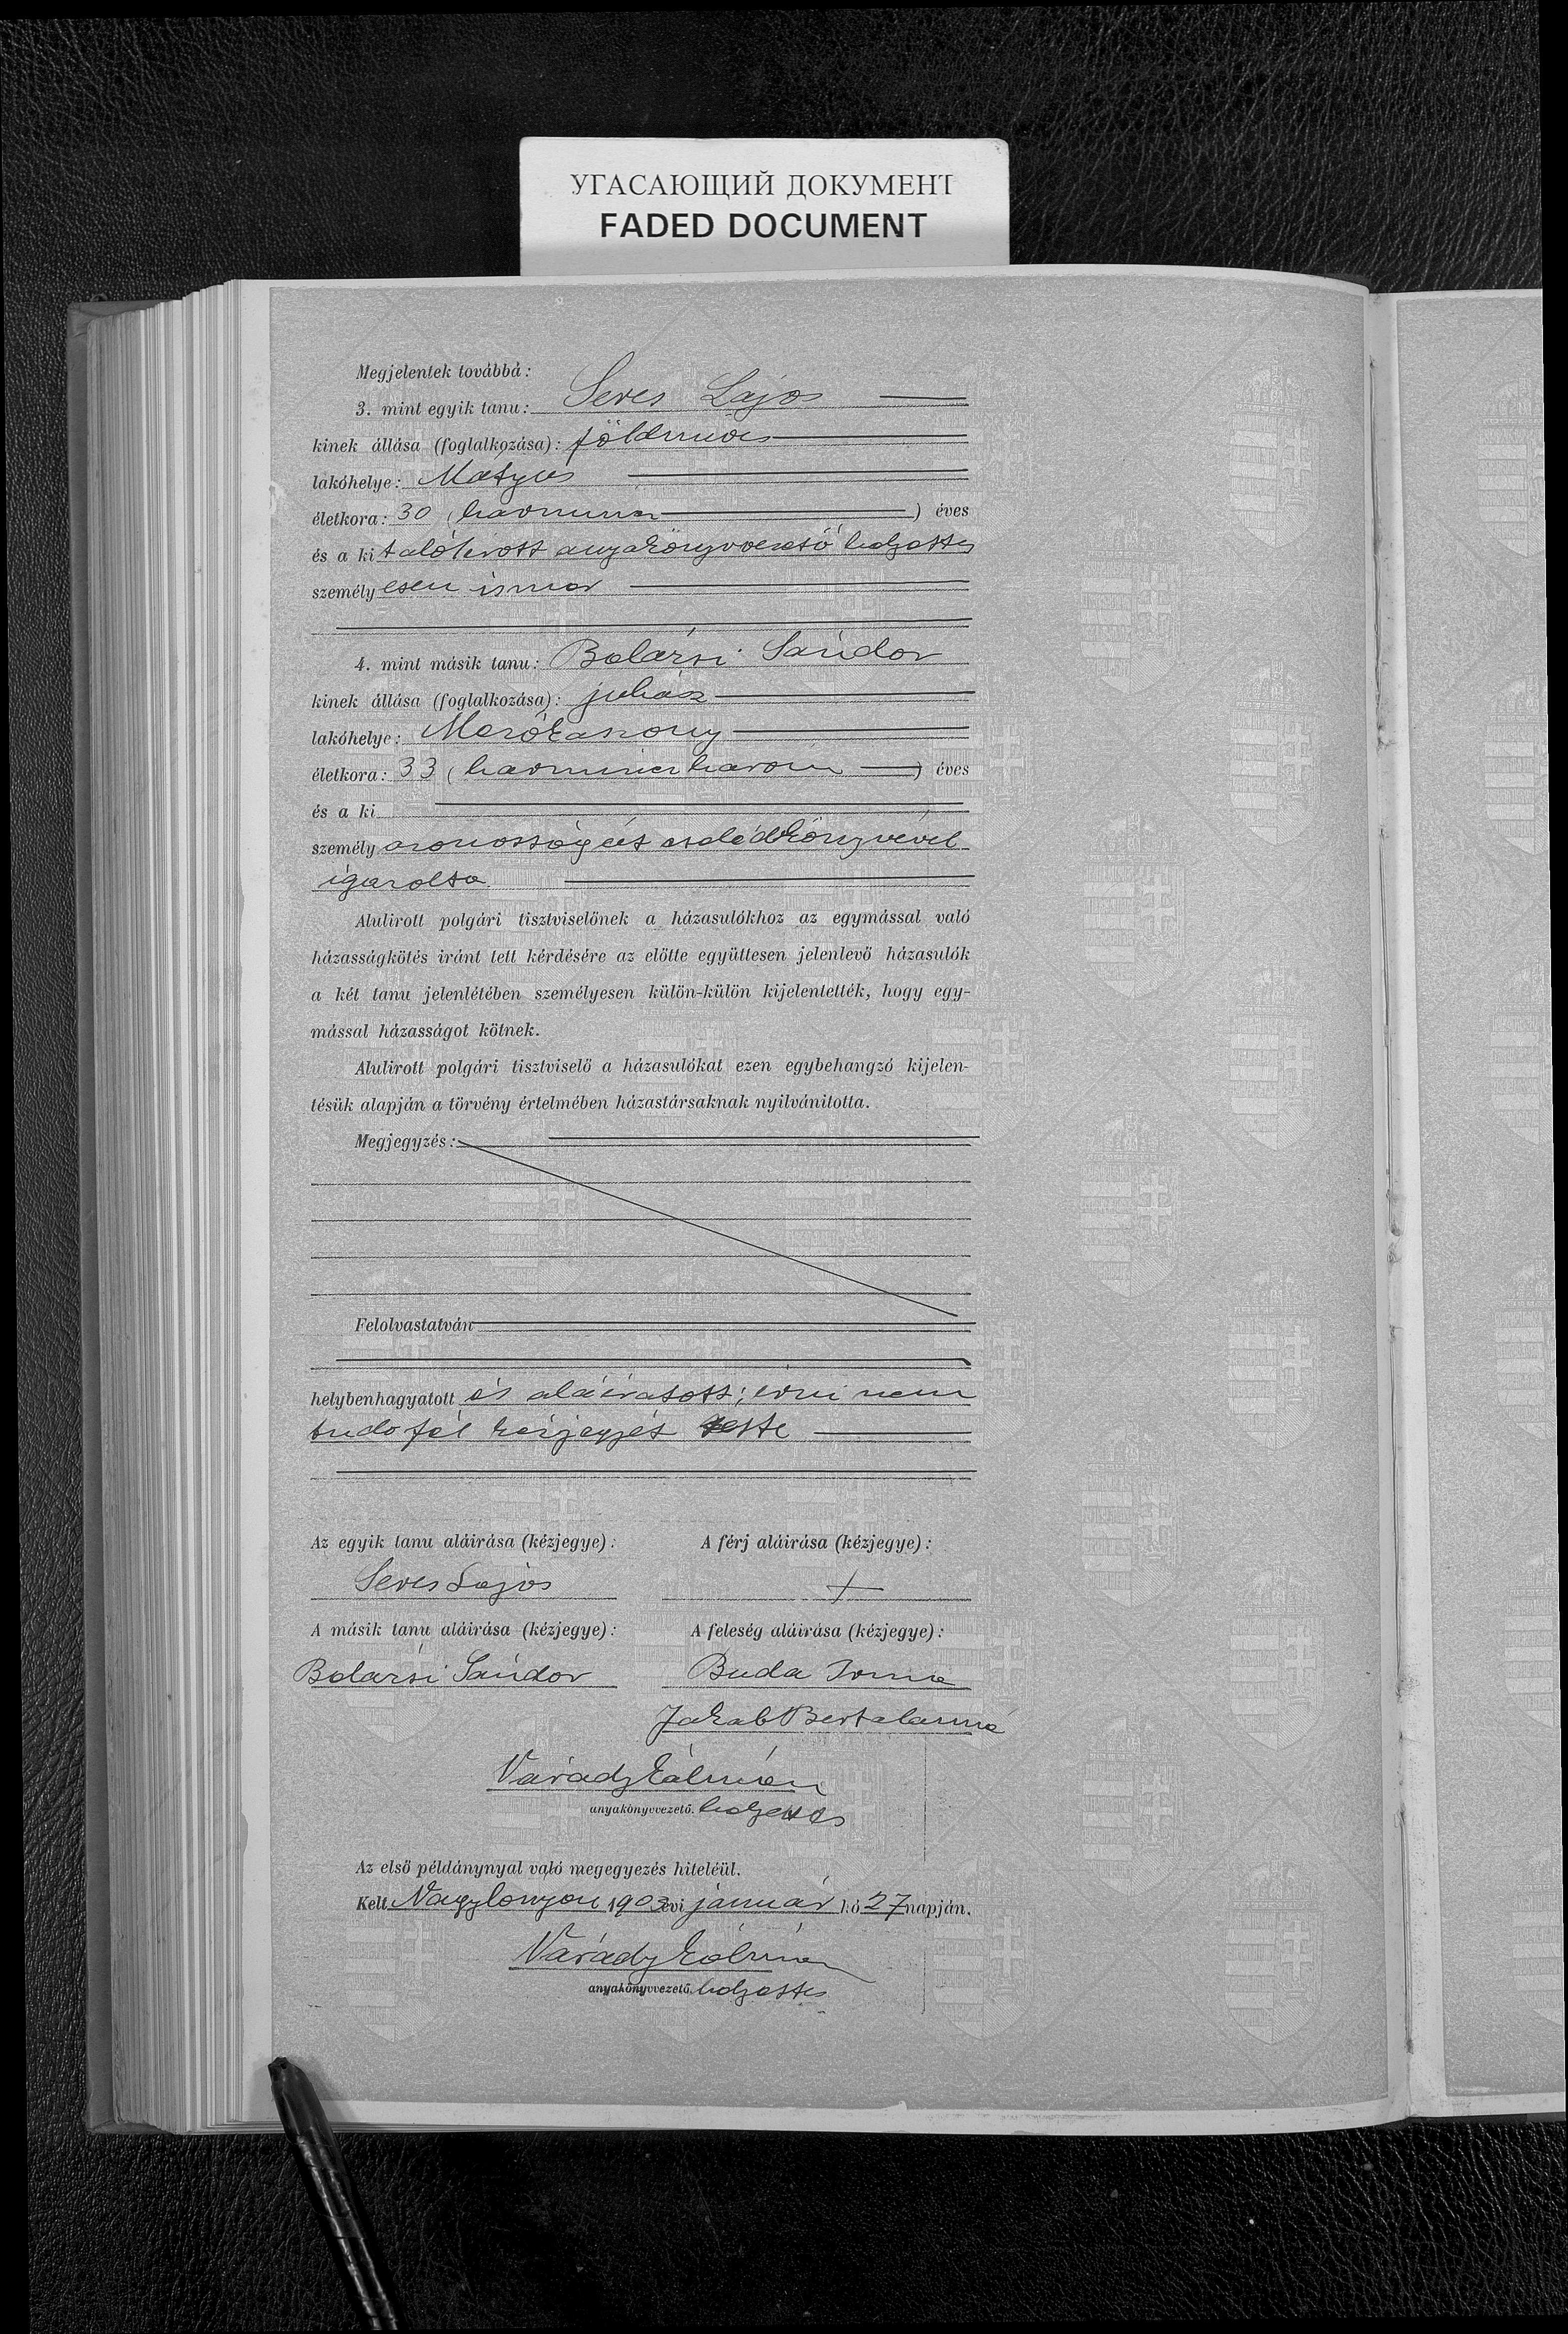 УГАСАЮЩИЙ ДОКУМЕНТ
FADED DOCUMENT
Megjelentek továbbá:
3. mint egyik tanu: Seres Lajos
kinek állása (foglalkozása): földmives
lakóhelye: Mátyus
életkora: 30 (harmincz) éves
és a ki t alólirott anyakönyvvezető helyettes
személyesen ismer
4. mint másik tanu: Sándor
kinek állása (foglalkozása): juhász
lakóhelye: Mezőkaszony
életkora: 33 (harminczhárom) éves
és a ki
személyazonosságát családkönyvével
igazolta.
Alulirott polgári tisztviselőnek a házasulókhoz az egymással való
házasságkötés iránt tett kérdésére az előtte együttesen jelenlevő házasulók
a két tanu jelenlétében személyesen külön-külön kijelentették, hogy egy-
mással házasságot kötnek.
Alulirott polgári tisztviselő a házasulókat ezen egybehangzó kijelen-
tésük alapján a törvény értelmében házastársaknak nyilvánitotta.
Megjegyzés:
Felolvastatván
helybenhagyatott és aláiratott; irni nem
tudo fél kézjegyét tette
Az egyik tanu aláirása (kézjegye): A férj aláirása (kézjegye):
Seres Lajos +
A másik tanu aláirása (kézjegye): A feleség aláirása (kézjegye):
Sándor Buda Irma
Jakab Bertalanné
Várady Kálmán
anyakönyvvezető. helyettes
Az első példánynyal való megegyezés hiteléül.
Kelt Nagylónyon 1903 évi január hó 27 napján.
Várady Kálmán
anyakönyvvezető. helyettes